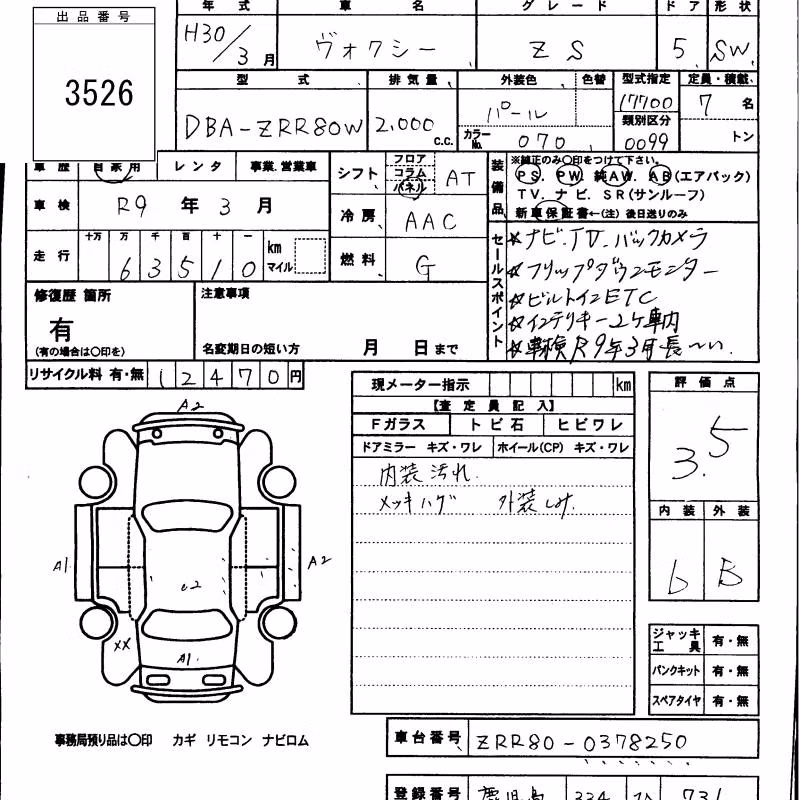 出品番号
3526
年式 車名 グレード ドア 形状
H30/3月 ヴォクシー ZS 5 SW
型式 排気量 外装色 色替 型式指定 定員・積載
DBA-ZRR80W 2,000c.c. パール 17700 7名
カラーNo. 070 類別区分 0099 トン
車歴 自家用 レンタ 事業.営業車
車検 R9年3月
走行 十万 万 千 百 十 一 km マイル
63510
シフト フロア コラム パネル AT
冷房 AAC
燃料 G
装備品 ※純正のみ○印をつけて下さい。
PS. PW. 純AW. AB(エアバック)
TV. ナビ. SR(サンルーフ)
新車保証書←(注)後日送りのみ
セールスポイント
☆ナビ.TV.バックカメラ
☆フリップダウンモニター
☆ビルトインETC
☆インテリキー2ケ車内
☆車検R9年3月長〜い.
修復歴 箇所
有
(有の場合は○印を)
注意事項
名変期日の短い方 月 日まで
リサイクル料 有・無 12470円
現メーター指示 km
【査定員記入】
Fガラス トビ石 ヒビワレ
ドアミラー キズ・ワレ ホイール(CP) キズ・ワレ
内装汚れ.
メッキハゲ 外装しみ
評価点
3.5
内装 外装
6 B
ジャッキ工具 有・無
パンクキット 有・無
スペアタイヤ 有・無
A2
A1 A2
e2
XX
A1
事務局預り品は○印 カギ リモコン ナビロム
車台番号 ZRR80-0378250
登録番号 鹿児島 334 731